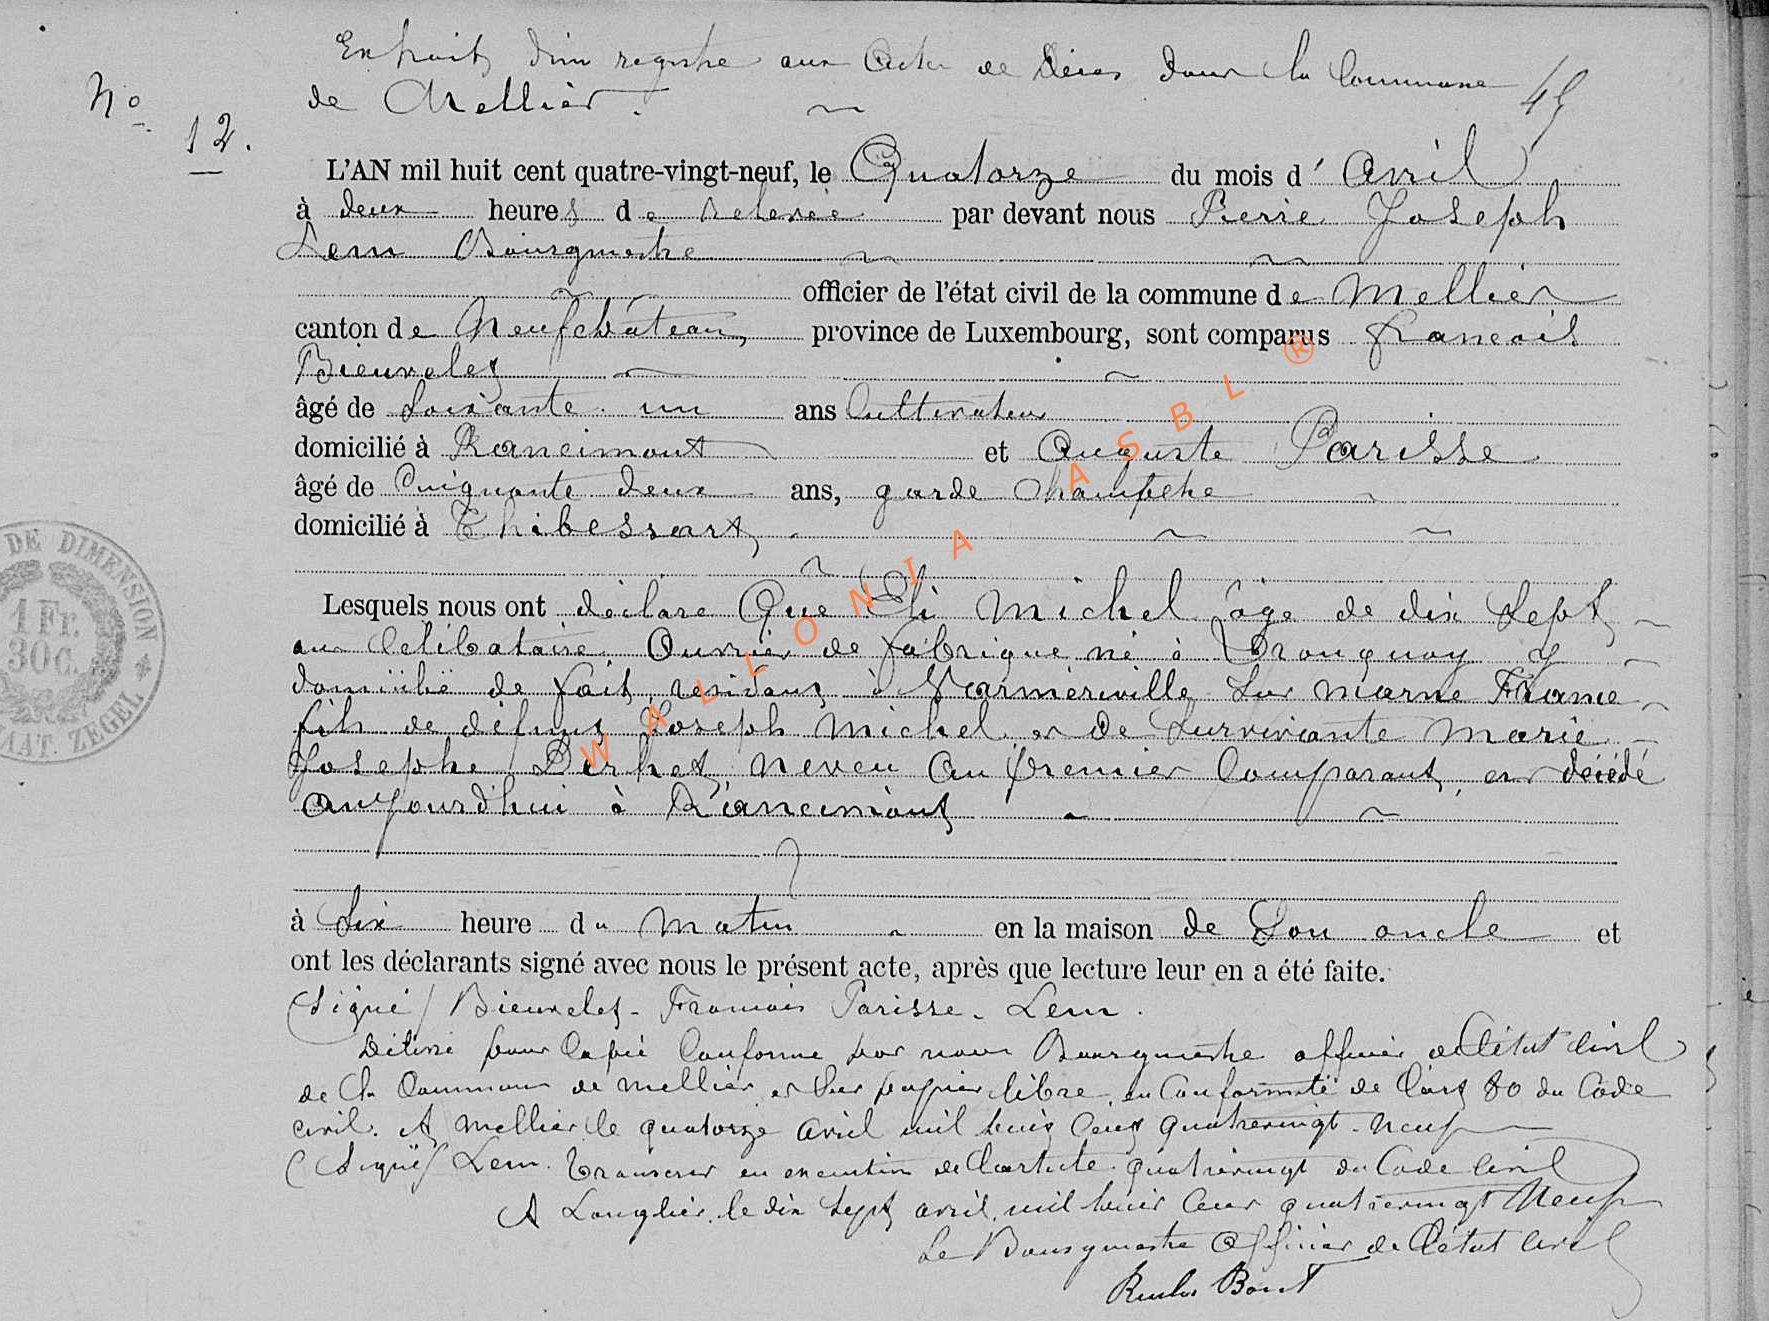 Extrait d'un registre aux Actes de Décès dans la Commune
de Mellier.
45
No
12.
L'AN mil huit cent quatre-vingt-neuf, le Quatorze du mois d' Avril
à deux heures de relevée par devant nous Pierre Joseph
Lem Bourgmestre
officier de l'état civil de la commune de Mellier
canton de Neufchâteau, province de Luxembourg, sont comparus François
Bieuvelet
âgé de Soixante un ans Cultivateur
domicilié à Rancimont et Auguste Parisse
âgé de Cinquante deux ans, garde Champêtre
domicilié à Thibessart
Lesquels nous ont déclaré Que Eli Michel âgé de dix Sept
ans Célibataire Ouvrier de fabrique né à Tronquoy y
domicilié de fait résidant à Warmeriville Sur marne France
fils de défunt Joseph Michel et de Survivante Marie
Josephe Dirhet neveu au premier Comparant, est décédé
aujourd'hui à Rancimont
à Six heure du Matin en la maison de Son oncle et
ont les déclarants signé avec nous le présent acte, après que lecture leur en a été faite.
(Signé) Bieuvelet - François Parisse - Lem.
Délivré pour Copie Conforme par nous Bourgmestre officier de l'état Civil
de la Commune de Mellier et Sur papier libre, en Conformité de l'art 80 du Code
civil. A Mellier le quatorze Avril mil huit Cent quatrevingt-neuf
(Signé) Lem. Transcrit en exécution de l'article quatrevingt du Code Civil
A Longlier, le dix Sept avril, mil huit Cent quatrevingt Neuf
Le Bourgmestre Officier de l'état civil
DE DIMENSION
1 Fr.
30 C.
ZEGEL
WALLONIA ASBL ®